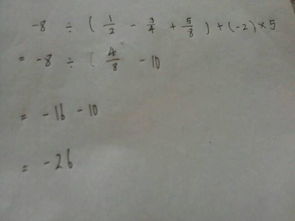 -8 ÷ ( 1/2 - 3/4 + 5/8 ) + (-2) × 5
= -8 ÷ ( 4/8 - 10
= -16 - 10
= -26